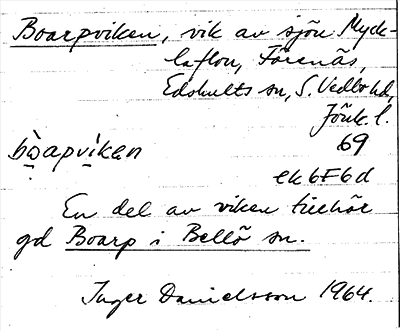 Boarpviken, vik av sjön Myck-
laflon, Förenäs,
Edshults sn, S. Vedbo hd,
Jönk. l.
69
bòapviken
ek 6F6d
En del av viken tillhör
gd Boarp i Bellö sn.
Inger Danielsson 1964.